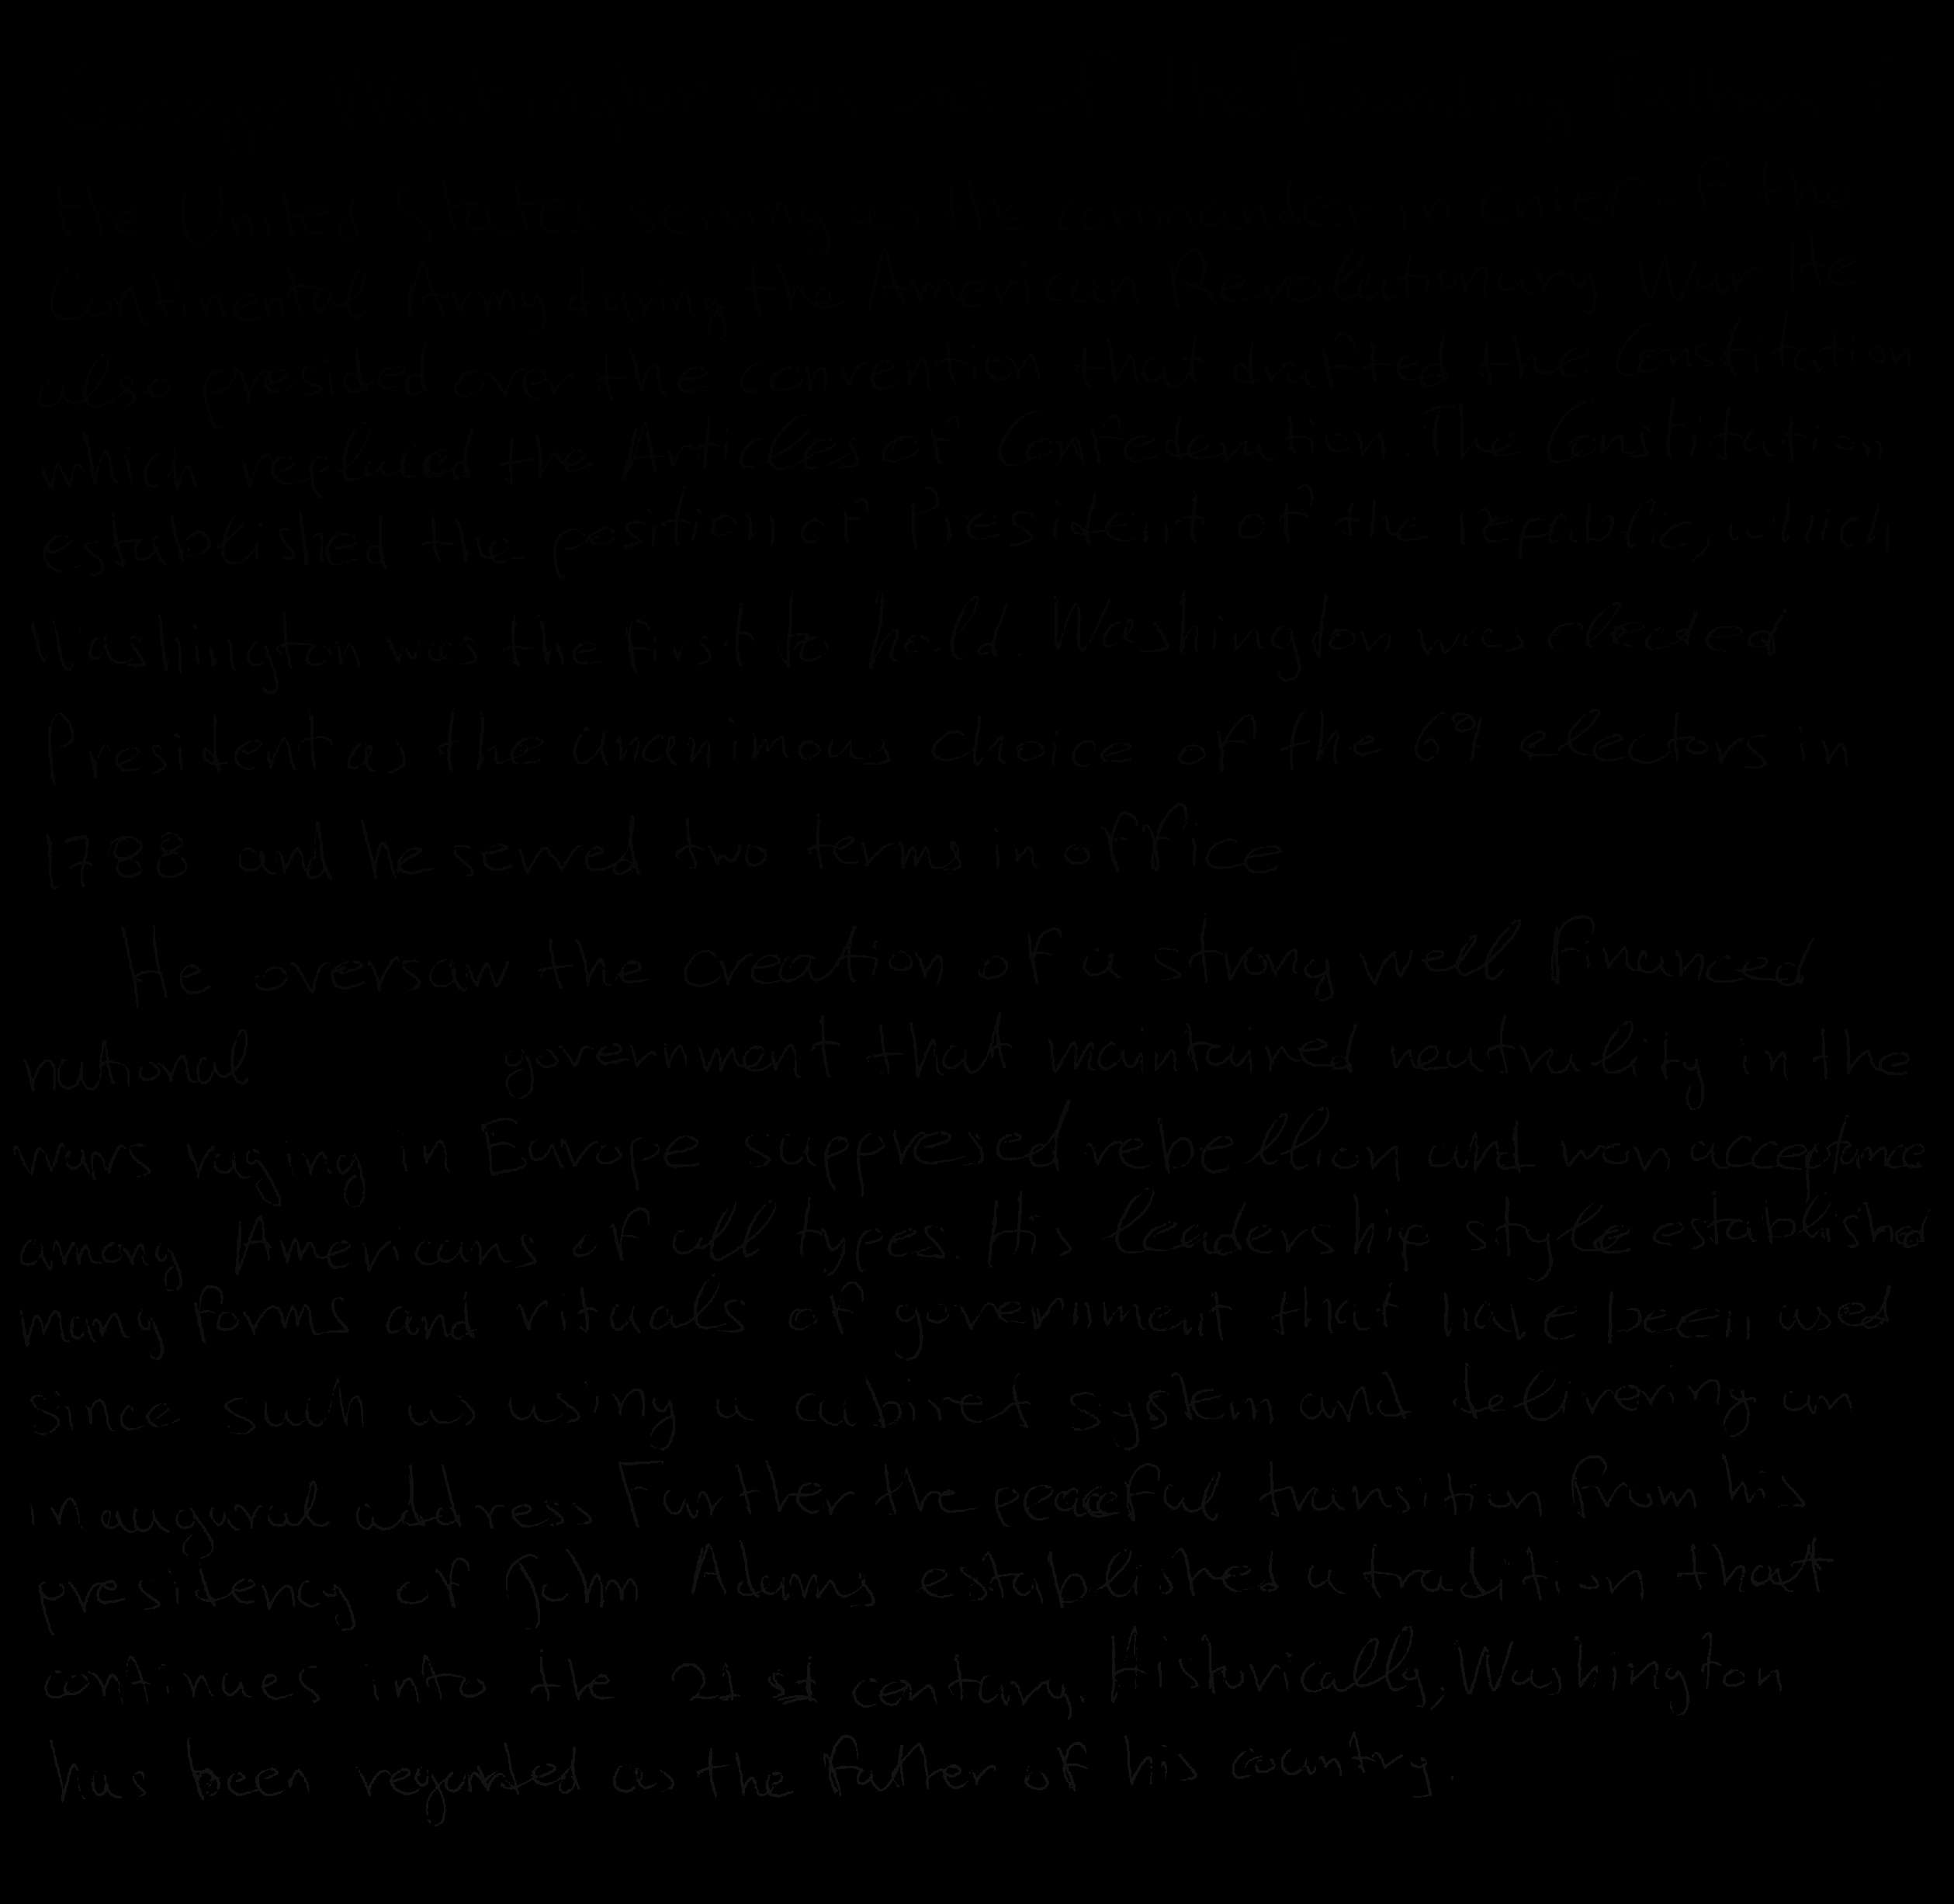 the United States serving as the commander in chief of the
Continental Army during the American Revolutionary War He
also presided over the convention that drafted the Constitution
which replaced the Articles of Confederation The Constitution
established the position of President of the republic, which
Washington was the first to hold. Washington was elected
President as the unanimous choice of the 69 electors in
1788 and he served two terms in office
He oversaw the creation of a strong well financed
national government that maintained neutrality in the
wars raging in Europe suppresed rebellion and won acceptance
among Americans of all types. His leadership style established
many forms and rituals of government that have been used
since such as using a cabinet system and delivering an
inaugural address Further the peaceful transition from his
presidency of John Adams established a tradition that
continues into the 21st century. Historically, Washington
has been regarded as the father of his country.